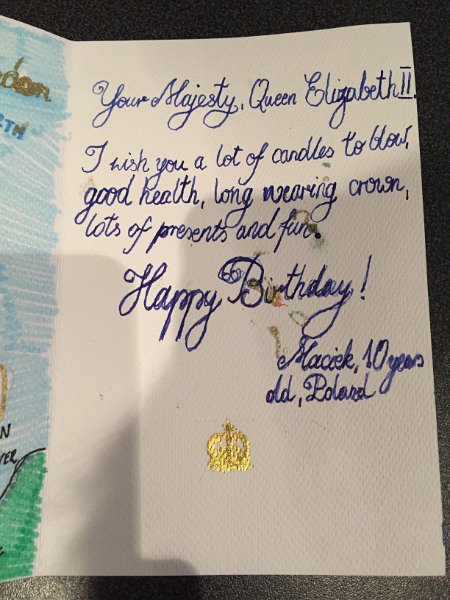 Your Majesty, Queen Elizabeth II.
I wish you a lot of candles to blow,
good health, long wearing crown,
lots of presents and fun.
Happy Birthday!
Maciek, 10 years
old, Poland